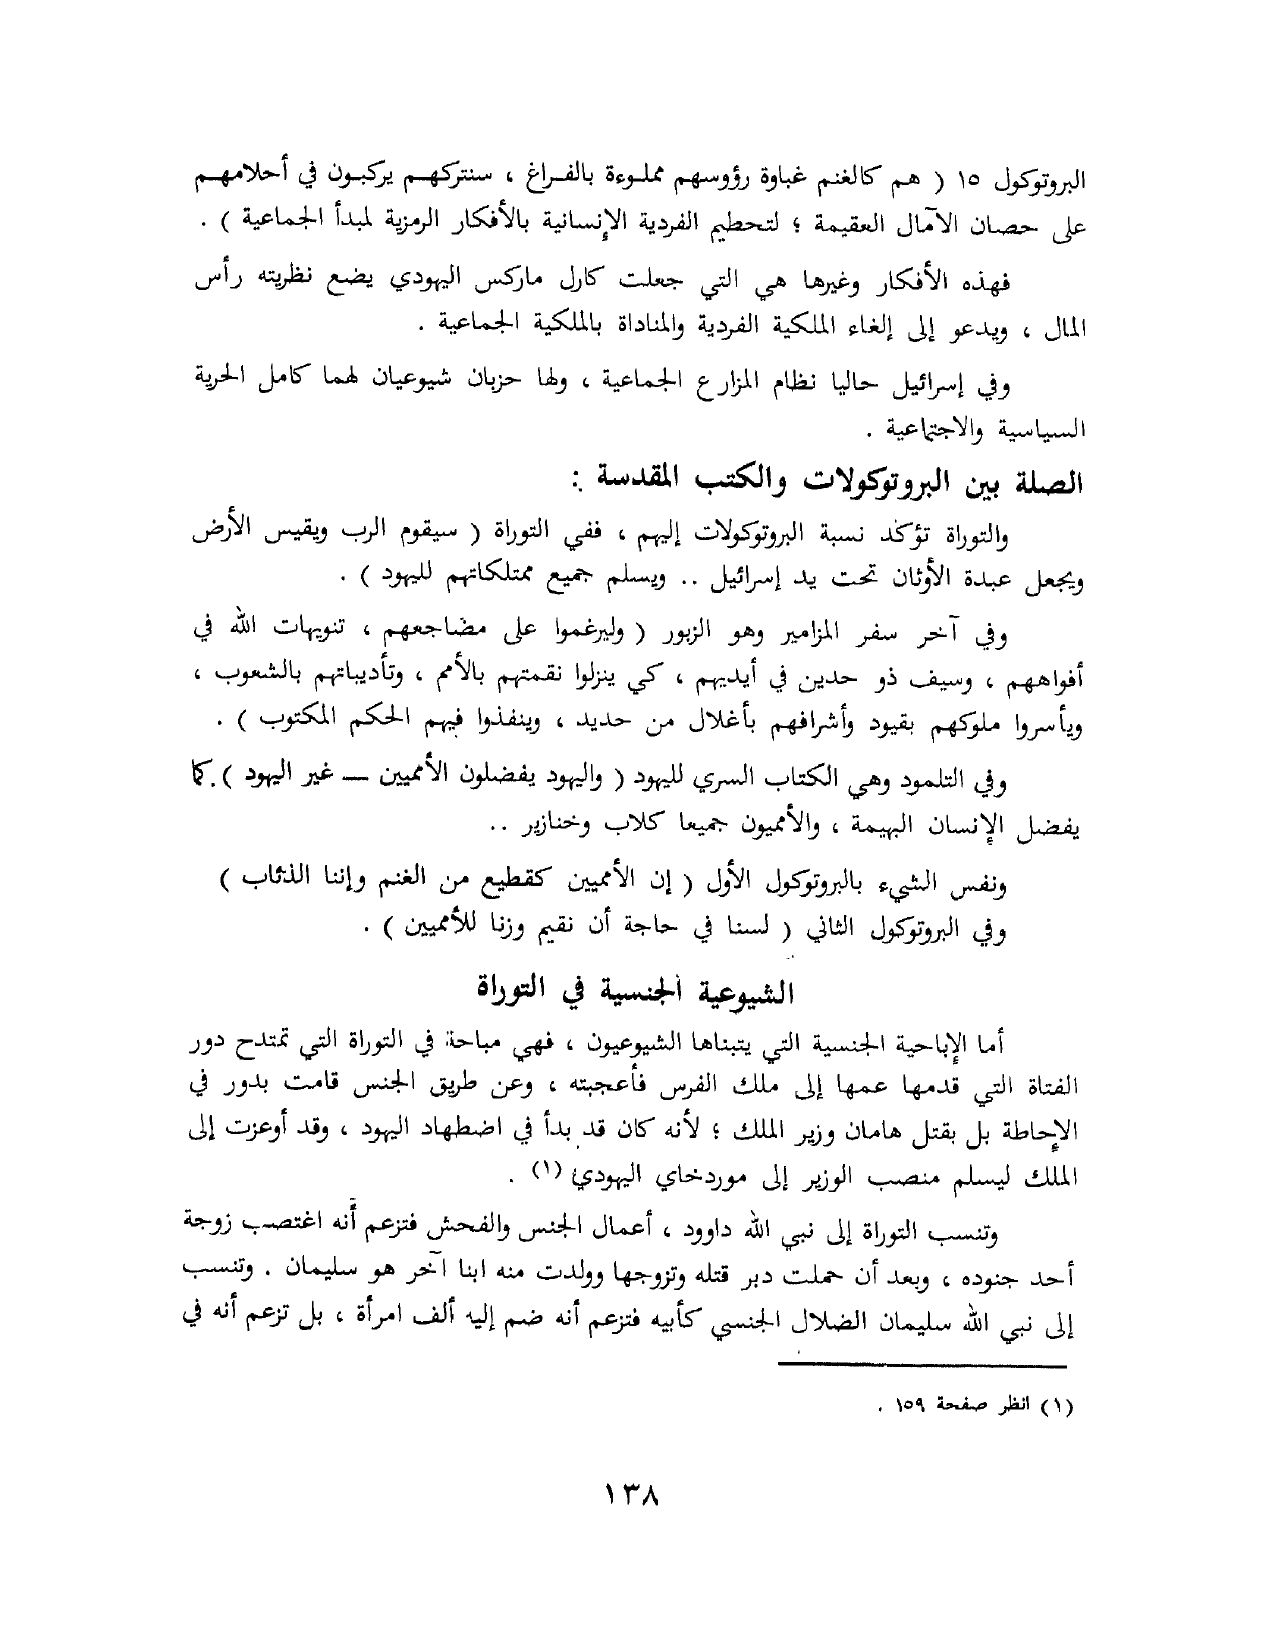 البروتوكول ١٥ ( هم كالغنم غباوة رؤوسهم مملوءة بالفراغ ، سنتركهم يركبون في أحلامهم
على حصان الآمال العقيمة ؛ لتحطيم الفردية الإنسانية بالأفكار الرمزية لمبدأ الجماعية ) .
فهذه الأفكار وغيرها هي التي جعلت كارل ماركس اليهودي يضع نظريته رأس
المال ، ويدعو إلى إلغاء الملكية الفردية والمناداة بالملكية الجماعية .
وفي إسرائيل حاليا نظام المزارع الجماعية ، ولها حزبان شيوعيان لهما كامل الحرية
السياسية والاجتماعية .
الصلة بين البروتوكولات والكتب المقدسة :
والتوراة تؤكد نسبة البروتوكولات إليهم ، ففي التوراة ( سيقوم الرب ويقيس الأرض
ويجعل عبدة الأوثان تحت يد إسرائيل .. ويسلم جميع ممتلكاتهم لليهود ) .
وفي آخر سفر المزامير وهو الزبور ( وليرغموا على مضاجعهم ، تنويهات الله في
أفواههم ، وسيف ذو حدين في أيديهم ، كي ينزلوا نقمتهم بالأمم ، وتأديباتهم بالشعوب ،
ويأسروا ملوكهم بقيود وأشرافهم بأغلال من حديد ، وينفذوا فيهم الحكم المكتوب ) .
وفي التلمود وهي الكتاب السري لليهود ( واليهود يفضلون الأمميين — غير اليهود ).كما
يفضل الإنسان البهيمة ، والأمميون جميعا كلاب وخنازير ..
ونفس الشيء بالبروتوكول الأول ( إن الأمميين كقطيع من الغنم وإننا الذئاب )
وفي البروتوكول الثاني ( لسنا في حاجة أن نقيم وزنا للأمميين ) .
الشيوعية الجنسية في التوراة
أما الإباحية الجنسية التي يتبناها الشيوعيون ، فهي مباحة في التوراة التي تمتدح دور
الفتاة التي قدمها عمها إلى ملك الفرس فأعجبته ، وعن طريق الجنس قامت بدور في
الإحاطة بل بقتل هامان وزير الملك ؛ لأنه كان قد بدأ في اضطهاد اليهود ، وقد أوعزت إلى
الملك ليسلم منصب الوزير إلى موردخاي اليهودي (١) .
وتنسب التوراة إلى نبي الله داوود ، أعمال الجنس والفحش فتزعم أنه اغتصب زوجة
أحد جنوده ، وبعد أن حملت دبر قتله وتزوجها وولدت منه ابنا آخر هو سليمان . وتنسب
إلى نبي الله سليمان الضلال الجنسي كأبيه فتزعم أنه ضم إليه ألف امرأة ، بل تزعم أنه في
(١) انظر صفحة ١٥٩ .
١٣٨